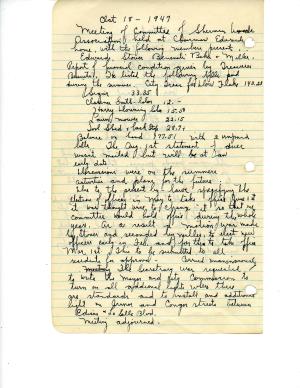 Oct 18 - 1947
Meeting of Committee of Sherman Woods
Association, held at Chairman Edwards
home, with the following members present.
Edwards, Stover, Bernardi, Bake & Miller.
Report of financial condition given by Treasurer
He listed the following bills paid
during the summer. City Treas for Snow Flakes 142.28
Sugar 33.25
12.-
Harry Flowering Shr 15.50
Paint mower 22.15
Tool Shed + back step 28.74
Balance on hand $97.51 with 2 unpaid
bills. The Aug. 1st statement of dues
wasn't mailed but will be at an
early date.
Discussions were on the summer
activities and plans for the future
Due to the present by laws specifying the
election of officers in May to take office June 12
it was thought wise to change it so that one
committee would hold office during the whole
year. As a result, a motion was made
by Stover and seconded by to elect new
officers early in Feb. and for them to take office
Mar. 1st. This to be submitted to all
residents for approval. Carried unanimously
The Secretary was requested
to write the Mayor and City Commission to
turn on all additional lights where there
are standards and to install and additional
light on Armour and Conger streets between
Edison + La Salle Blvd.
Meeting adjourned.